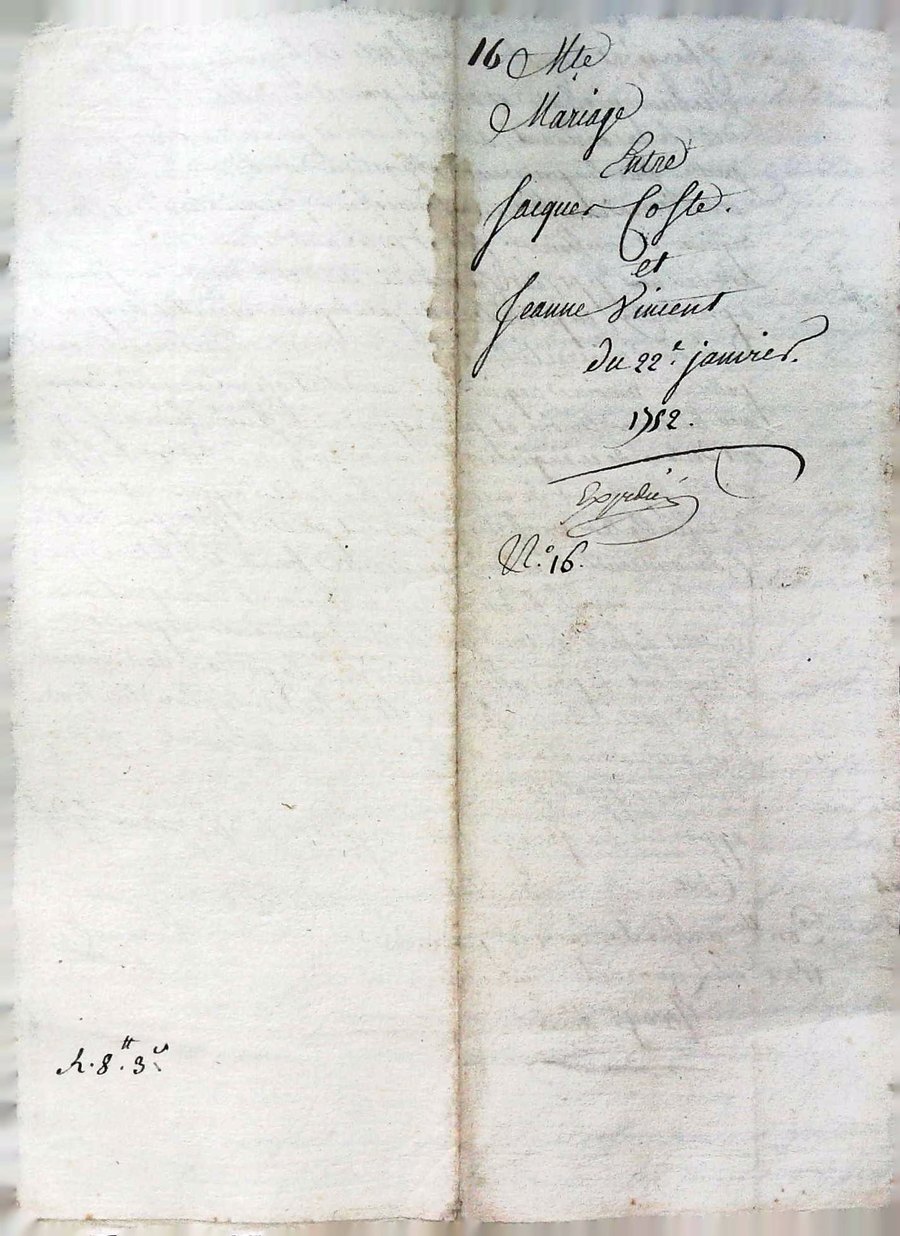 16 Mte
Mariage
Entre
Jacques Coste.
et
Jeanne Vincent
du 22e. janvier.
1752.
Expedié
N.o 16.
R. 8tt. 3s